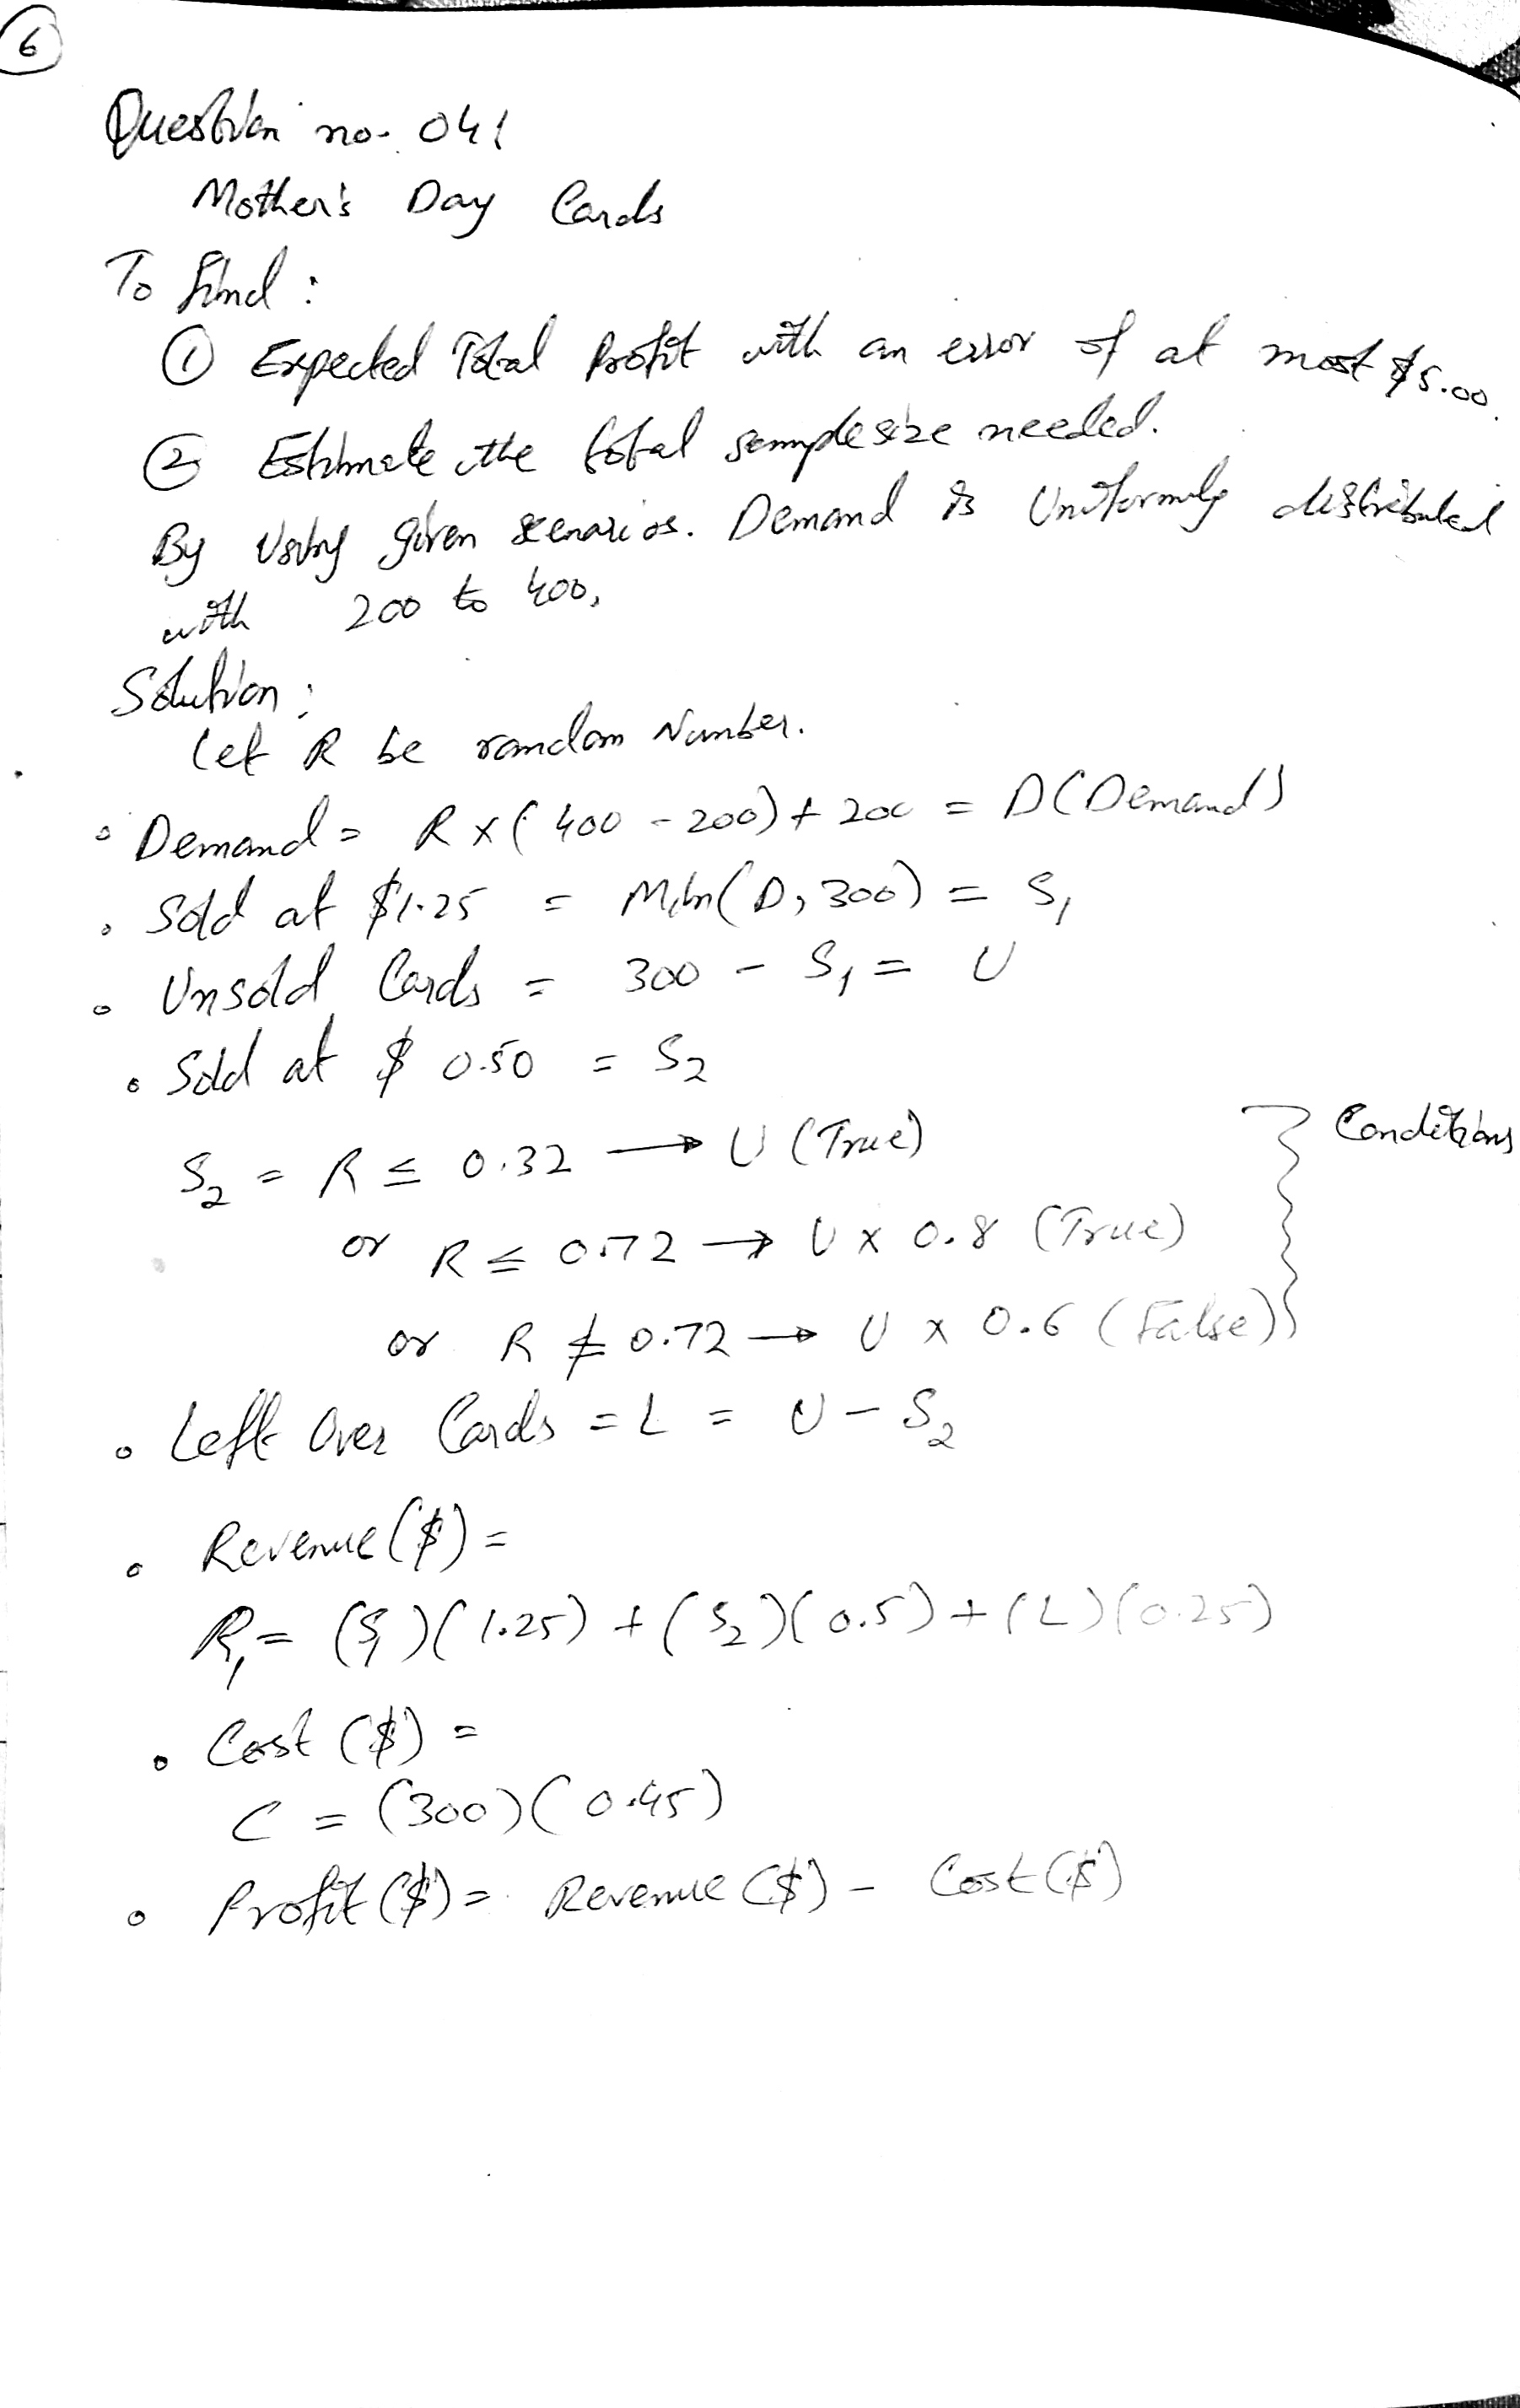 6
Question no. 041
Mother's Day Cards
To find :
① Expected Total Profit with an error of at most $5.00.
② Estimate the total sample size needed.
By Using given scenarios. Demand is Uniformly distributed
with 200 to 400,
Solution :
Let R be random Number.
• Demand = R x ( 400 - 200) + 200 = D (Demand)
• Sold at $1.25 = Min( D, 300) = S₁
• Unsold Cards = 300 - S₁ = U
• Sold at $ 0.50 = S₂
S₂ = R ≤ 0.32 → U (True)
or R ≤ 0.72 → U x 0.8 (True)
or R ≰ 0.72 → U x 0.6 (False)
} Conditions
• Left Over Cards = L = U - S₂
• Revenue ($) =
R₁ = (S₁)(1.25) + (S₂)(0.5) + (L)(0.25)
• Cost ($) =
C = (300)(0.45)
• Profit ($) = Revenue ($) - Cost ($)